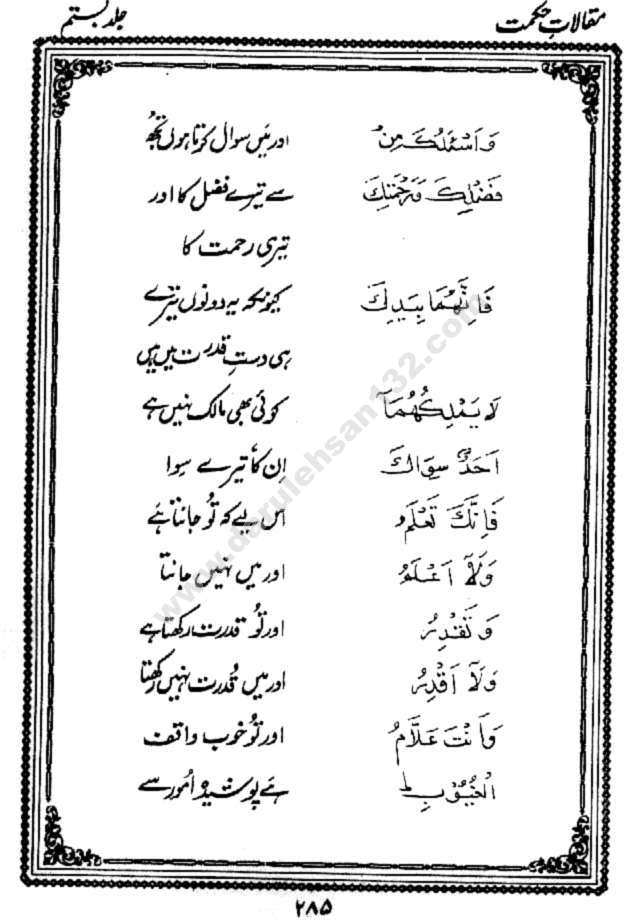 مقالاتِ حکمت جلد بستم
وَاَسْئَلُكَ مِنْ اور میں سوال کرتا ہوں تجھ
فَضْلِكَ وَرَحْمَتِكَ سے تیرے فضل کا اور
تیری رحمت کا
فَاِنَّهُمَا بِيَدِكَ کیونکہ یہ دونوں تیرے
ہی دستِ قدرت میں ہیں
لَا يَمْلِكُهُمَآ کوئی بھی مالک نہیں ہے
اَحَدٌ سِوَاكَ اِن کا تیرے سِوا
فَاِنَّكَ تَعْلَمُ اس لیے کہ تُو جانتا ہے
وَلَآ اَعْلَمُ اور میں نہیں جانتا
وَتَقْدِرُ اور تُو قدرت رکھتا ہے
وَلَآ اَقْدِرُ اور میں قُدرت نہیں رکھتا
وَاَنْتَ عَلَّامُ اور تُو خوب واقف
الْغُيُوْبِ ط ہے پوشیدہ اُمور سے
۲۸۵
www.darulehsan132.com